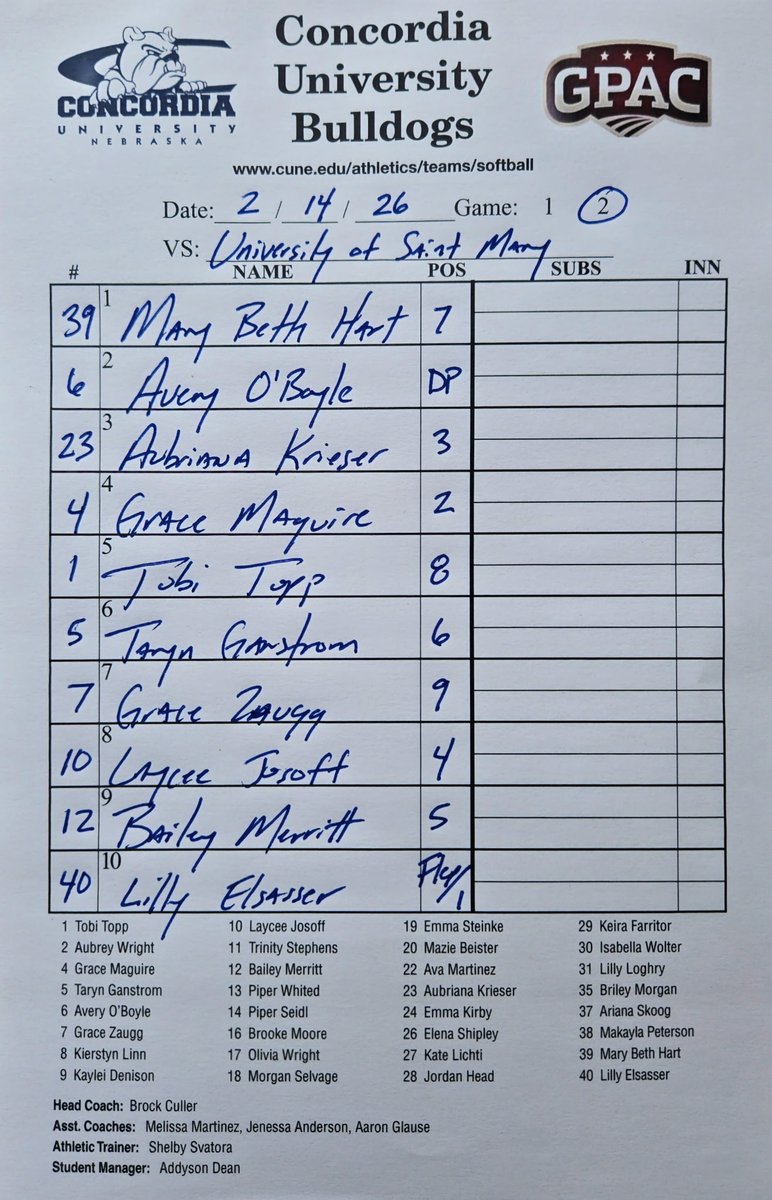 CONCORDIA
UNIVERSITY
NEBRASKA
Concordia
University
Bulldogs
GPAC
www.cune.edu/athletics/teams/softball
Date: 2 / 14 / 26 Game: 1 2
VS: University of Saint Mary
# NAME POS SUBS INN
39 1 Mary Beth Hart 7
6 2 Avery O'Boyle DP
23 3 Aubriana Krieser 3
4 4 Grace Maguire 2
1 5 Tobi Topp 8
5 6 Taryn Ganstrom 6
7 7 Grace Zaugg 9
10 8 Laycee Josoff 4
12 9 Bailey Merritt 5
40 10 Lilly Elsasser Flex/1
1 Tobi Topp 10 Laycee Josoff 19 Emma Steinke 29 Keira Farritor
2 Aubrey Wright 11 Trinity Stephens 20 Mazie Beister 30 Isabella Wolter
4 Grace Maguire 12 Bailey Merritt 22 Ava Martinez 31 Lilly Loghry
5 Taryn Ganstrom 13 Piper Whited 23 Aubriana Krieser 35 Briley Morgan
6 Avery O'Boyle 14 Piper Seidl 24 Emma Kirby 37 Ariana Skoog
7 Grace Zaugg 16 Brooke Moore 26 Elena Shipley 38 Makayla Peterson
8 Kierstyn Linn 17 Olivia Wright 27 Kate Lichti 39 Mary Beth Hart
9 Kaylei Denison 18 Morgan Selvage 28 Jordan Head 40 Lilly Elsasser
Head Coach: Brock Culler
Asst. Coaches: Melissa Martinez, Jenessa Anderson, Aaron Glause
Athletic Trainer: Shelby Svatora
Student Manager: Addyson Dean